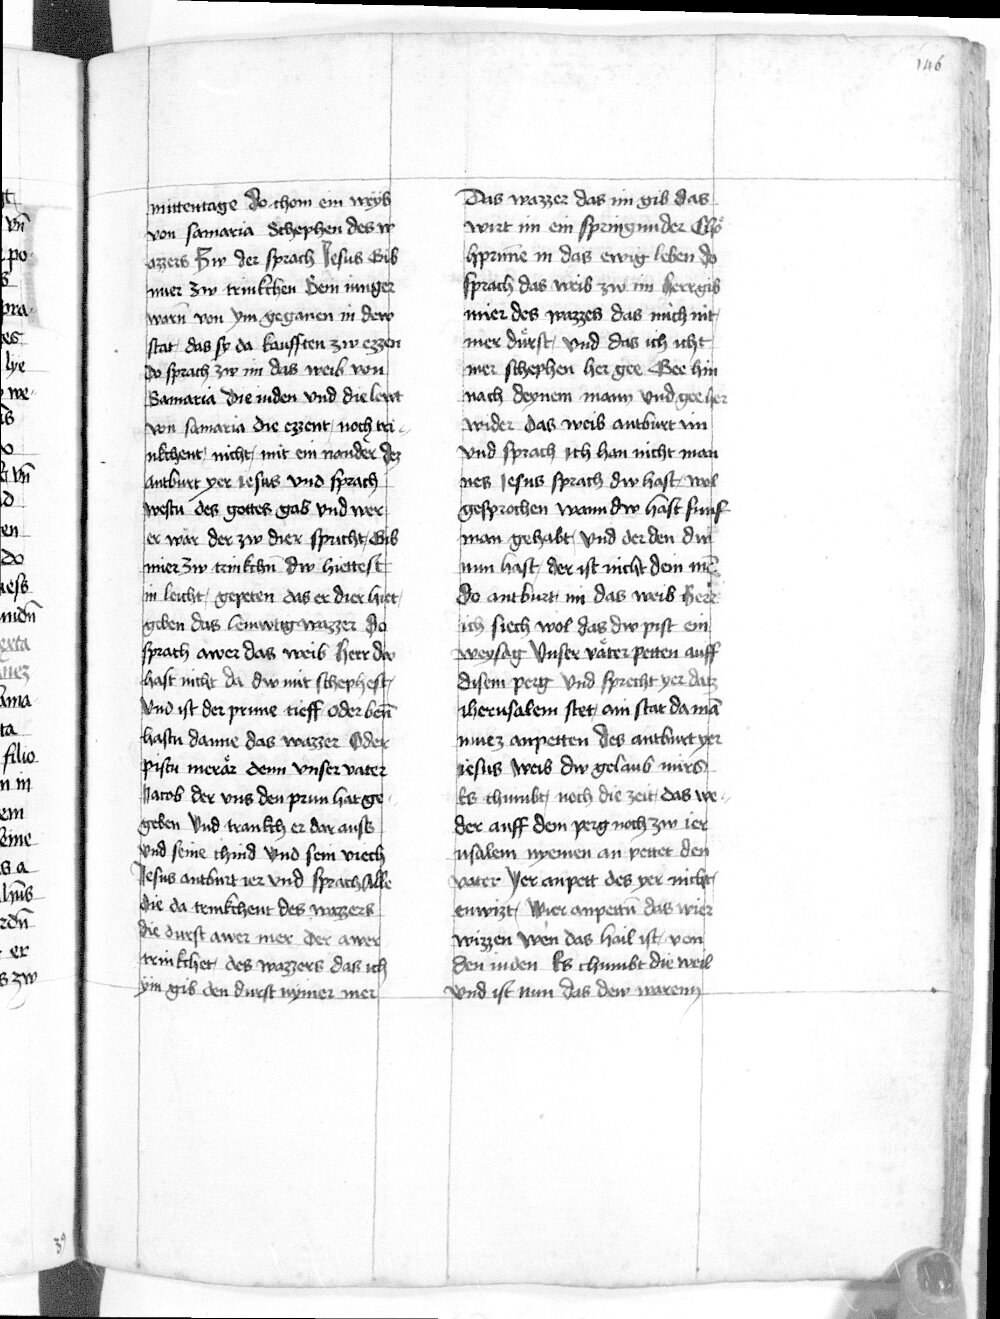 146
mittentage do chom ein weyb
von samaria Schephen des w
azzers Zw der sprach Jesus Gib
mier zw trinkchen Sein iunger
warn von ym gegangen in dew
stat das sy da kaufften zw ezzen
do sprach zw im das weib von
Samaria Die iuden vnd die lewt
von samaria die ezzent noch tri
nkchent nicht mit ein nander dez
antburt yer iesus vnd sprach
westu des gottes gab vnd wer
er wär der zw dier spricht Gib
mier zw trinkchn dw hiettest
in leicht gepeten das er dier hiet
geben das lemwtig wazzer Do
sprach awer das weib herr dw
hast nicht da dw mit schephest
vnd ist der prunne tieff oder benn
hastu danne das wazzer Oder
pistu merär denn vnser vater
Jacob der vns den prun hat ge
geben vnd trankch er dar auss
vnd seine chind vnd sein viech
Jesus antburt ier vnd sprach Alle
die da trinkchent des wazzers
die durst awer mer der awer
trinkchet des wazzers das ich
ym gib den durst nymer mer
Das wazzer das im gib das
wirt im ein springunder Chö
hprunne in das ewig leben do
sprach das weib zw im herr gib
mier des wazzes das mich nit
mer dürst vnd das ich icht
mer schephen her gee Gee hin
nach deynem mann vnd gee her
wider das weib antburt im
vnd sprach ich han nicht man
nes Jesus sprach dw hast wol
gesprochen wann dw hast funf
man gehabt vnd der den dw
nun hast der ist nicht dein mē
do antburt im das weib herr
ich siech wol das dw pist ein
weysag Vnser väter petten auff
disem perg vnd sprecht yer datz
iherusalem stet am stat da mā
muez anpetten des antburt yer
iesus weib dw gelaub mirs
Es chumbt noch die zeit das we
der auff dem perg noch zw ier
usalem nyemen an pettet den
vater Yer anpett des yer nicht
enwizt Wier anpettn̄ das wier
wizzen wen das hail ist von
den iuden Es chumbt die weil
vnd ist nun das dew warenn
39